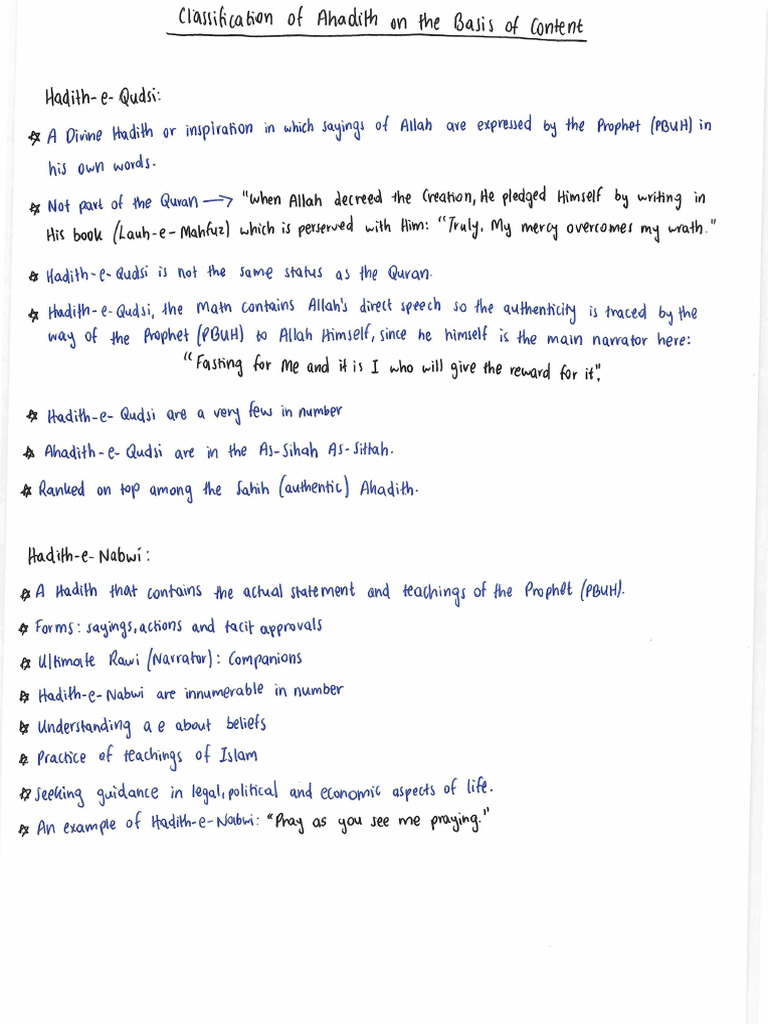 Classification of Ahadith on the Basis of Content
Hadith-e-Qudsi:
☆ A Divine Hadith or inspiration in which sayings of Allah are expressed by the Prophet (PBUH) in
his own words.
☆ Not part of the Quran → "When Allah decreed the Creation, He pledged Himself by writing in
His book (Lauh-e-Mahfuz) which is perserved with Him: "Truly, My mercy overcomes my wrath."
☆ Hadith-e-Qudsi is not the same status as the Quran.
☆ Hadith-e-Qudsi, the Matn contains Allah's direct speech so the authenticity is traced by the
way of the Prophet (PBUH) to Allah Himself, since he himself is the main narrator here:
"Fasting for Me and it is I who will give the reward for it".
☆ Hadith-e-Qudsi are a very few in number
☆ Ahadith-e-Qudsi are in the As-Sihah As-Sittah.
☆ Ranked on top among the Sahih (authentic) Ahadith.
Hadith-e-Nabwi:
☆ A Hadith that contains the actual statement and teachings of the Prophet (PBUH).
☆ Forms: sayings, actions and tacit approvals
☆ Ultimate Rawi (Narrator): Companions
☆ Hadith-e-Nabwi are innumerable in number
☆ Understanding a e about beliefs
☆ Practice of teachings of Islam
☆ Seeking guidance in legal, political and economic aspects of life.
☆ An example of Hadith-e-Nabwi: "Pray as you see me praying."